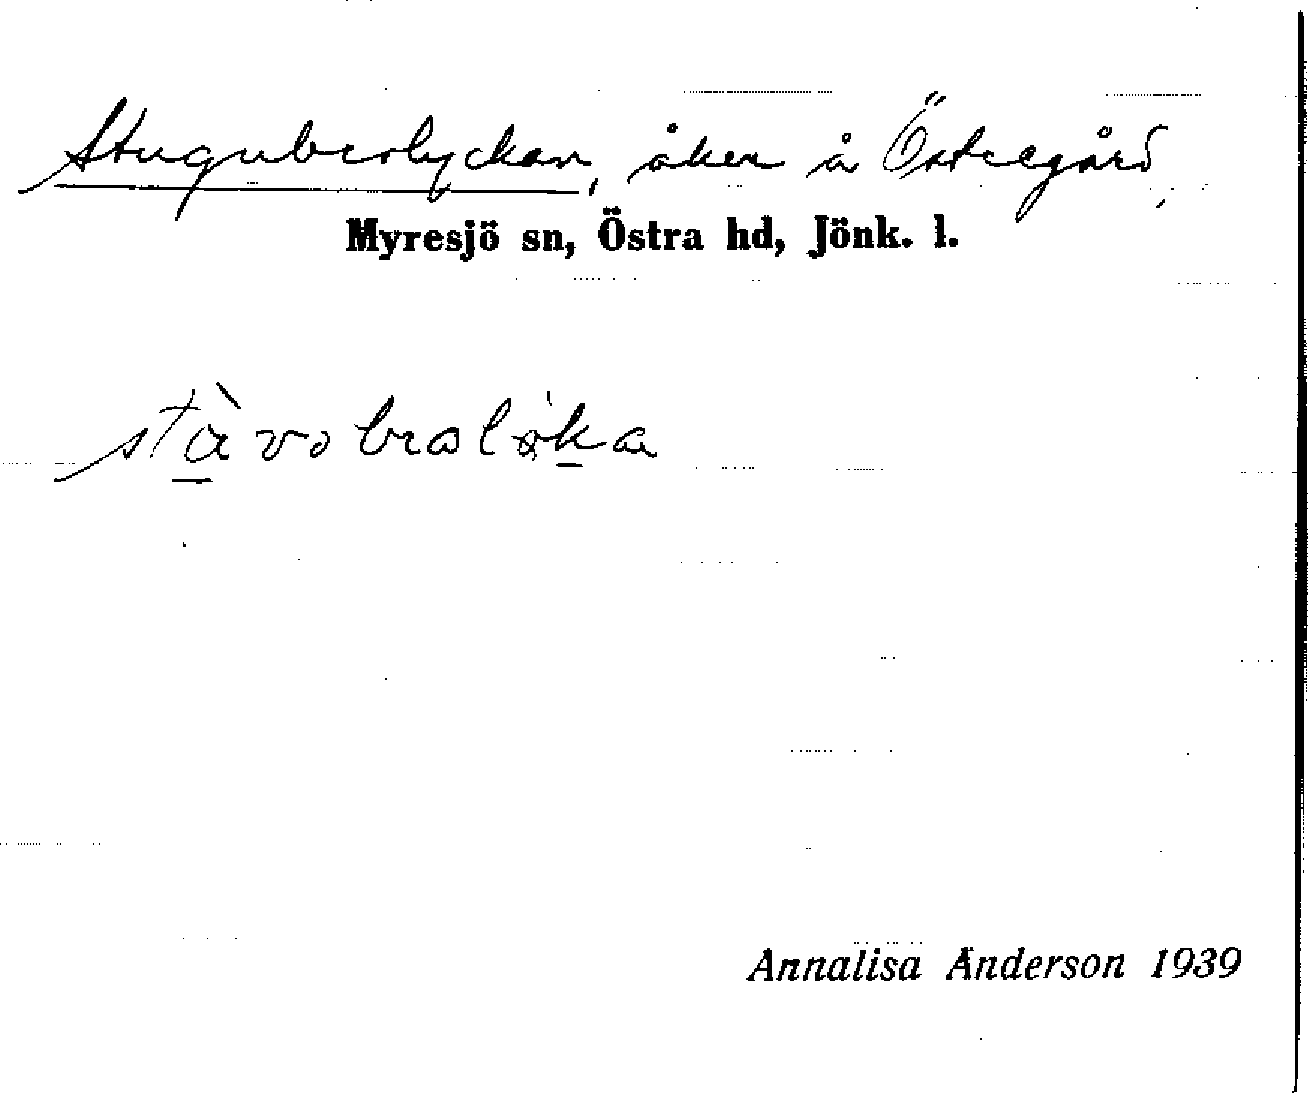 Stugubrolyckan, åker å Östregård,
Myresjö sn, Östra hd, Jönk. l.
stàvobralöka
Annalisa Anderson 1939